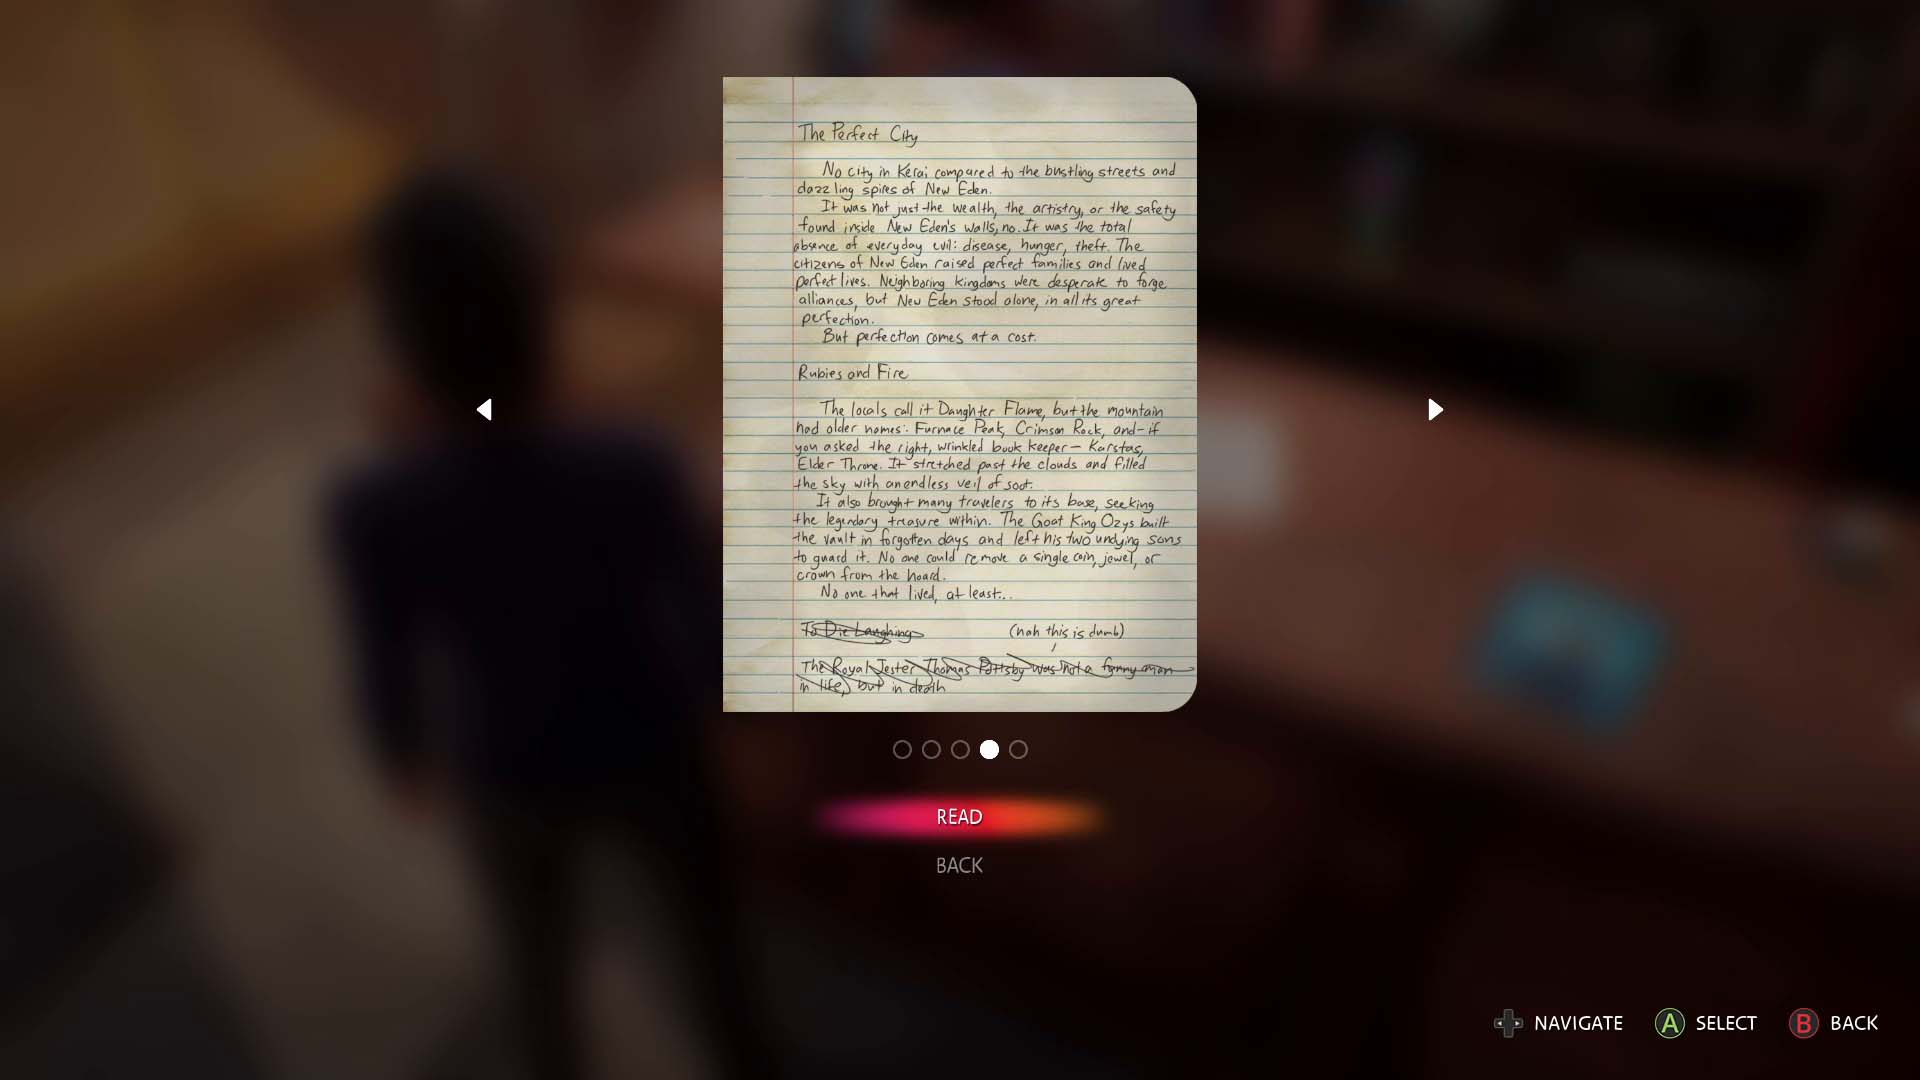 The Perfect City
No city in Kérai compared to the bustling streets and
dazzling spires of New Eden.
It was not just the wealth, the artistry, or the safety
found inside New Eden's walls, no. It was the total
absence of everyday evil: disease, hunger, theft. The
citizens of New Eden raised perfect families and lived
perfect lives. Neighboring kingdoms were desperate to forge
alliances, but New Eden stood alone, in all its great
perfection.
But perfection comes at a cost.
Rubies and Fire
The locals call it Daughter Flame, but the mountain
had older names: Furnace Peak, Crimson Rock, and - if
you asked the right, wrinkled book keeper — Karstas,
Elder Throne. It stretched past the clouds and filled
the sky with an endless veil of soot.
It also brought many travelers to its base, seeking
the legendary treasure within. The Goat King Ozys built
the vault in forgotten days and left his two undying sons
to guard it. No one could remove a single coin, jewel, or
crown from the hoard.
No one that lived, at least...
To Die Laughing (nah this is dumb)
The Royal Jester Thomas Pittsby was not a funny man
in life, but in death
READ
BACK
NAVIGATE A SELECT B BACK